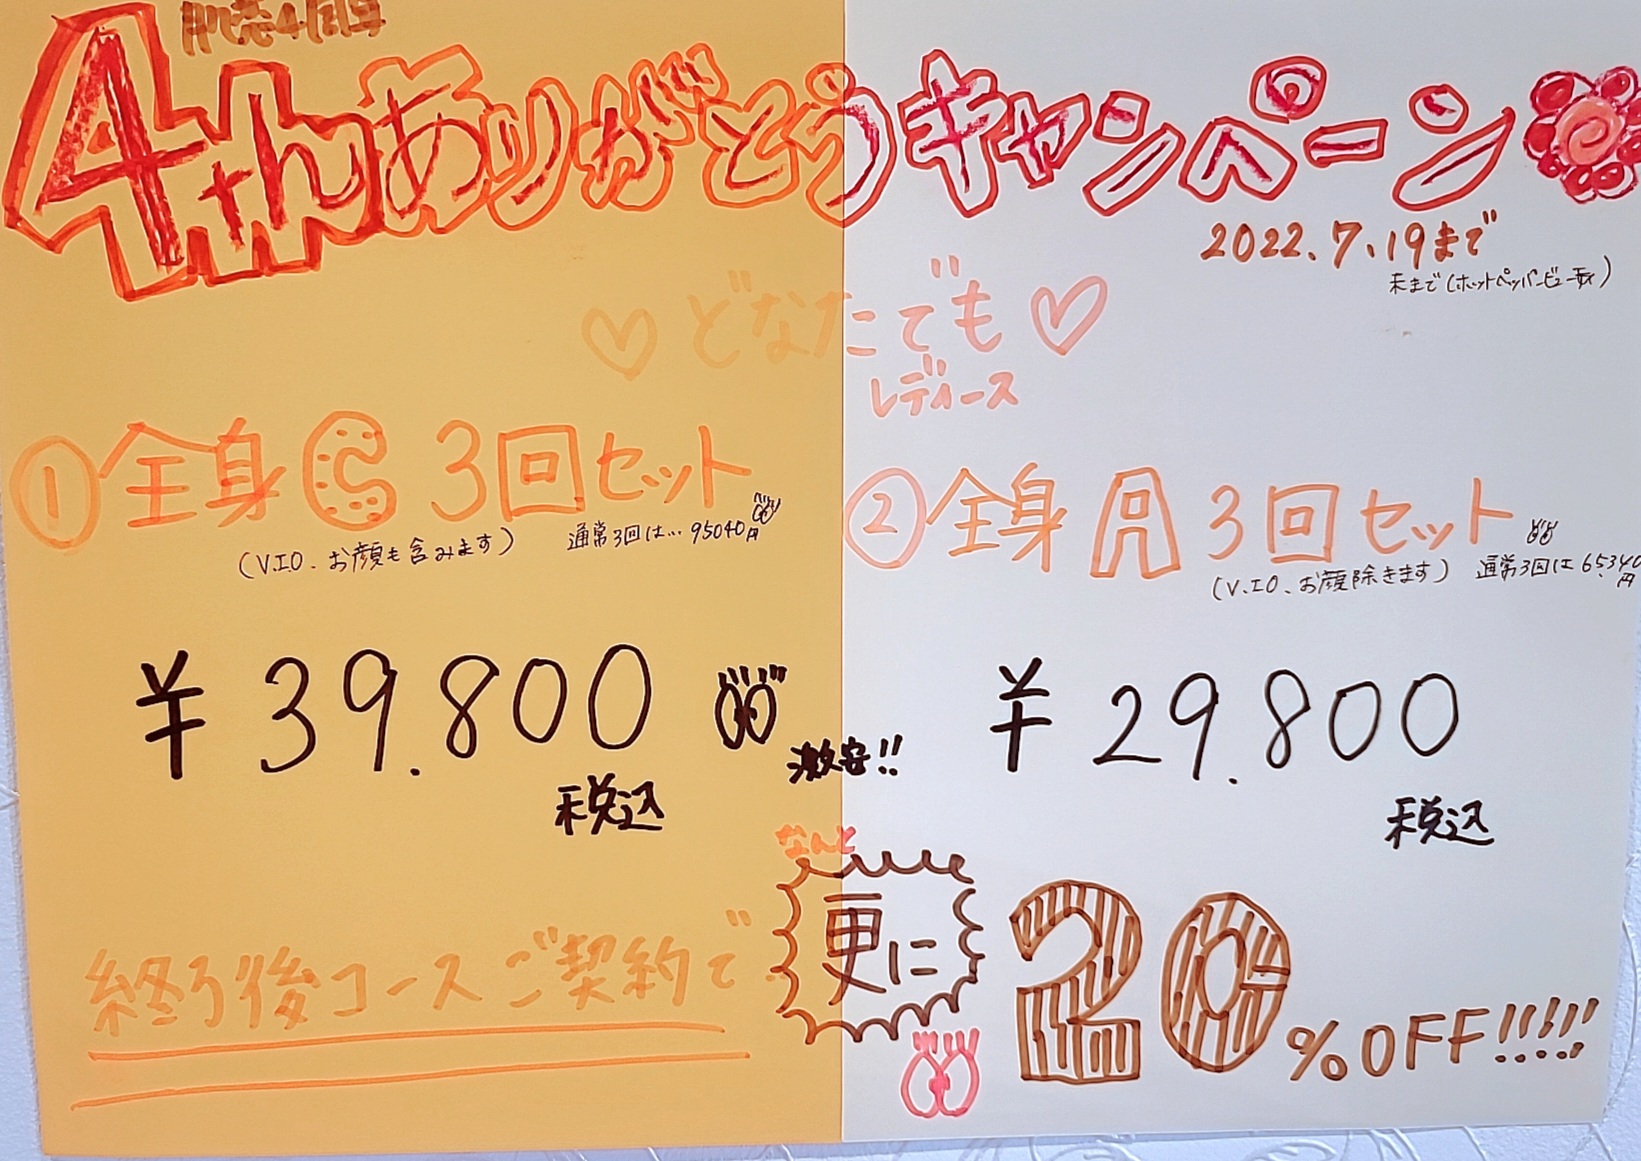 肌恋4周年
4thありがとうキャンペーン
2022.7.19まで
末まで(ホットペッパービューティ)
♡どなたでも♡
レディース
①全身C3回セット
(V.I.O.お顔も含みます) 通常3回は…95040円
¥39.800
税込
激安!!
②全身A3回セット
(V.I.O.お顔除きます) 通常3回は65.340円
¥29.800
税込
なんと
終了後コースご契約で更に20%OFF!!!!!